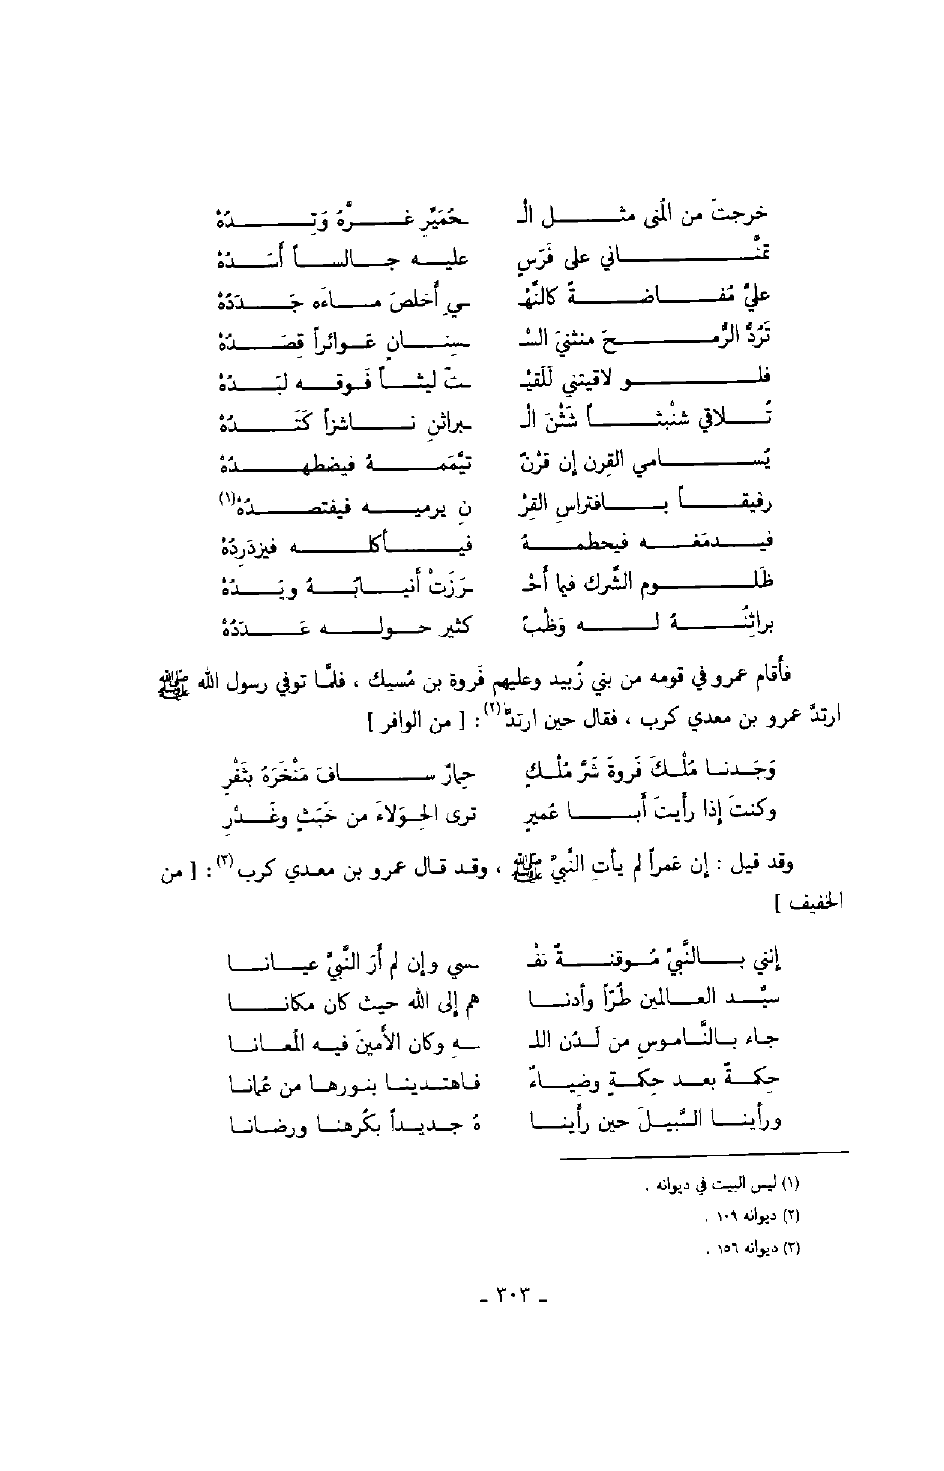 خرجتَ من المنى مثـل الـ ـحُمَيِّرِ غـرَّهُ وَتِـدُهْ
تمنَّـاني على فَرَسٍ عليـه جـالسـاً أسَـدُهْ
عليَّ مُفـاضـةٌ كالنَّهْـ ـيِ أخلصَ مـاءَه جَـدَدُهْ
تَرُدُّ الرُّمـحَ منثنيَ السْـ ـسِنـانِ عَـوائراً قِصَـدُهْ
فلـو لاقيتني للَقيْـ ـتَ ليثـاً فَـوقـه لِبَـدُهْ
تُـلاقي شَنْبثـاً شَثْنَ الْـ ـبراثنِ نـاشزاً كَتَـدُهْ
يُسـامي القِرن إن قرْنٌ تيَّمَمـهُ فيضطهِـدُهْ
رفيقـاً بـافتراسِ القِرْ نِ يرميـه فيفتصـدُهْ(١)
فيـدمَغـه فيحطِمـهُ فيـأكلـه فيزدَرِدُهْ
ظَلـوم الشِّرك فيما أحْـ ـرَزَتْ أنيـابُـهُ ويَـدُهْ
براثِنُـهُ لـه وَظْبٌ كثير حـولـه عَـدَدُهْ
فأقام عمرو في قومه من بني زُبيد وعليهم فَروة بن مُسيك ، فلمَّا توفي رسول الله ﷺ
ارتدَّ عمرو بن معدي كرب ، فقال حين ارتدَّ(٢) : [ من الوافر ]
وَجَـدنـا مُلْـكَ فَروةَ شَرَّ مُلْـكٍ حِمارٌ سـافَ مَنْخَرَهُ بِثَفْرِ
وكنتَ إذا رأيتَ أبـا عُميرٍ ترى الحِـوَلاءَ من خَبَثٍ وغَـدْرِ
وقد قيل : إن عَمراً لم يأتِ النَّبيَّ ﷺ ، وقـد قـال عمرو بن معـدي كرب(٣) : [ من
الخفيف ]
إنني بـالنَّبيِّ مُـوقنـةٌ نفْـ ـسي وإن لم أرَ النَّبيَّ عيـانـا
سيِّـد العـالمين طُرّاً وأدنـا هم إلى الله حيث كان مكانـا
جـاء بـالنَّامـوسِ من لَـدُن اللـ ـهِ وكان الأمينَ فيـه المُعـانـا
حِكمـةً بعـد حِكمـةٍ وضِيـاءً فـاهتـدينـا بنـورهـا من عَمانا
ورأينـا السَّبيـلَ حين رأينـا هُ جـديـداً بكُرهنـا ورضـانـا
(١) ليس البيت في ديوانه .
(٢) ديوانه ١٠٩ .
(٣) ديوانه ١٥٦ .
ـ ٣٠٣ ـ